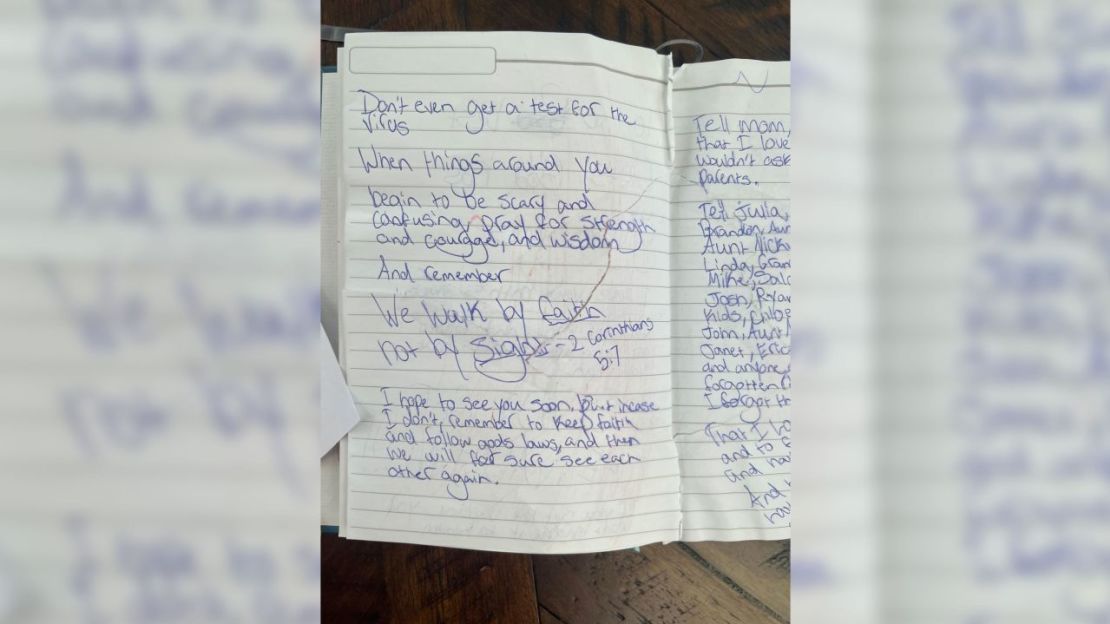 Don't even get a test for the
virus
When things around you
begin to be scary and
confusing, pray for strength
and courage, and wisdom
And remember
We walk by faith
not by sight - 2 Corinthians
5:7
I hope to see you soon, but incase
I don't, remember to keep faith
and follow gods laws, and then
we will for sure see each
other again.
Tell mom,
that I love
wouldn't ask
parents.
Tell Julia,
Brandon, Aun
Aunt Nick
Linda, Gran
Mike,
Josh, Ryan
Kids, Chloe
John, Aunt
Janet, Eric
and anyone
forgotten
I forgot th
That I lo
and to
and ha
And